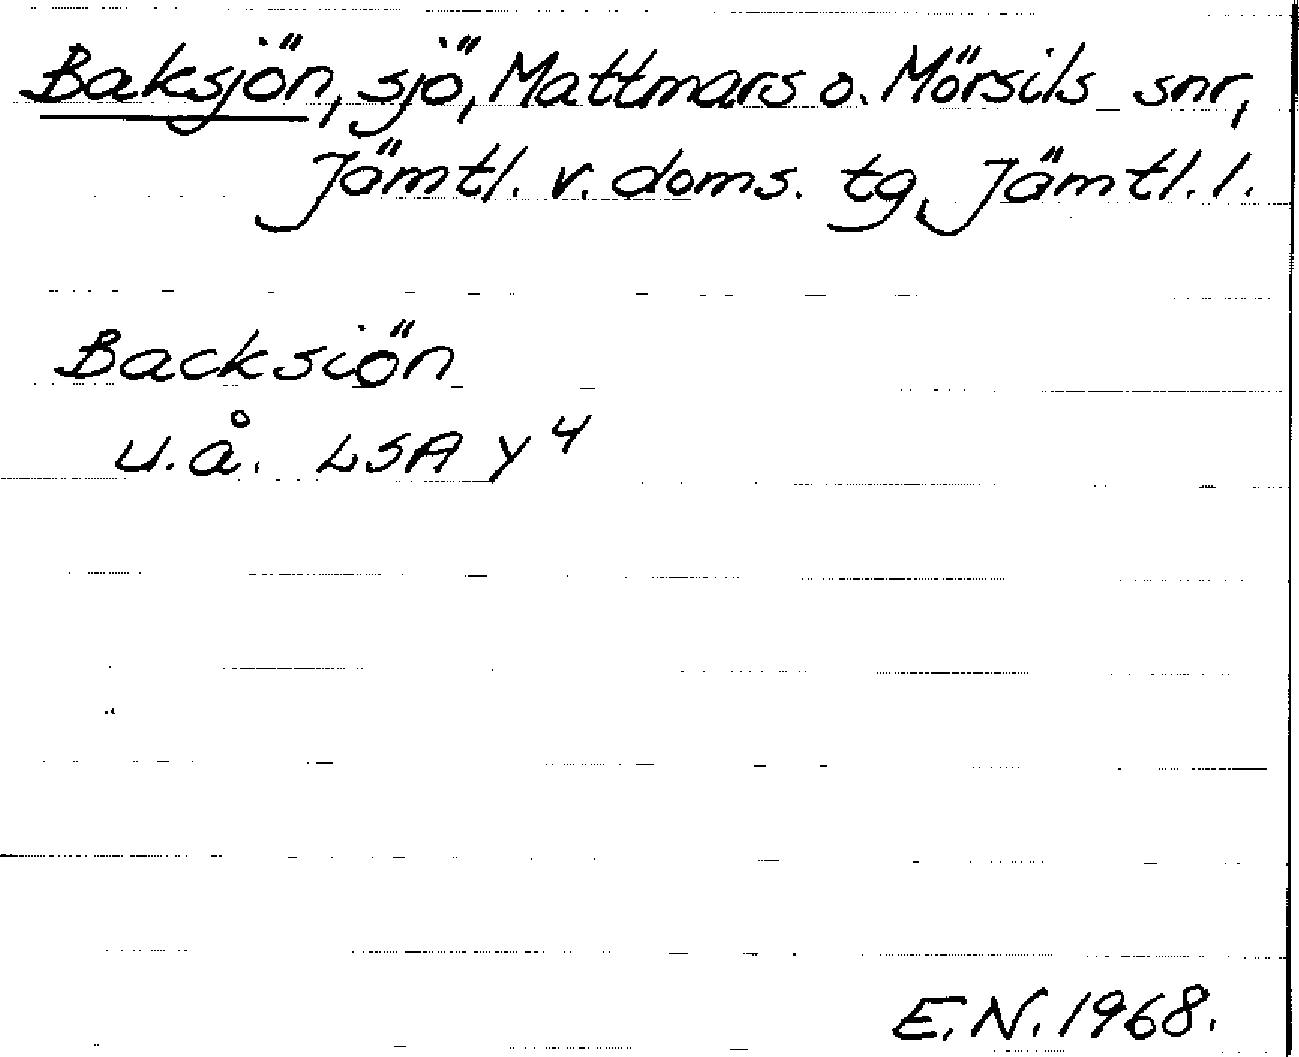 Baksjön, sjö, Mattmars o. Mörsils snr,
Jämtl. v. doms. tg, Jämtl. l.
Backsiön
u.å. LSA Y 4
E.N. 1968.